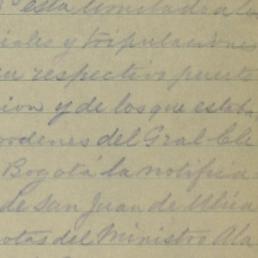 esta limitado a la
iales y tripulaciones
su respectivo puerto
cion y de los que estab
ordenes del Gral. Cli
Bogotá la notifica
de San Juan de Ulúa
otas del Ministro Ala